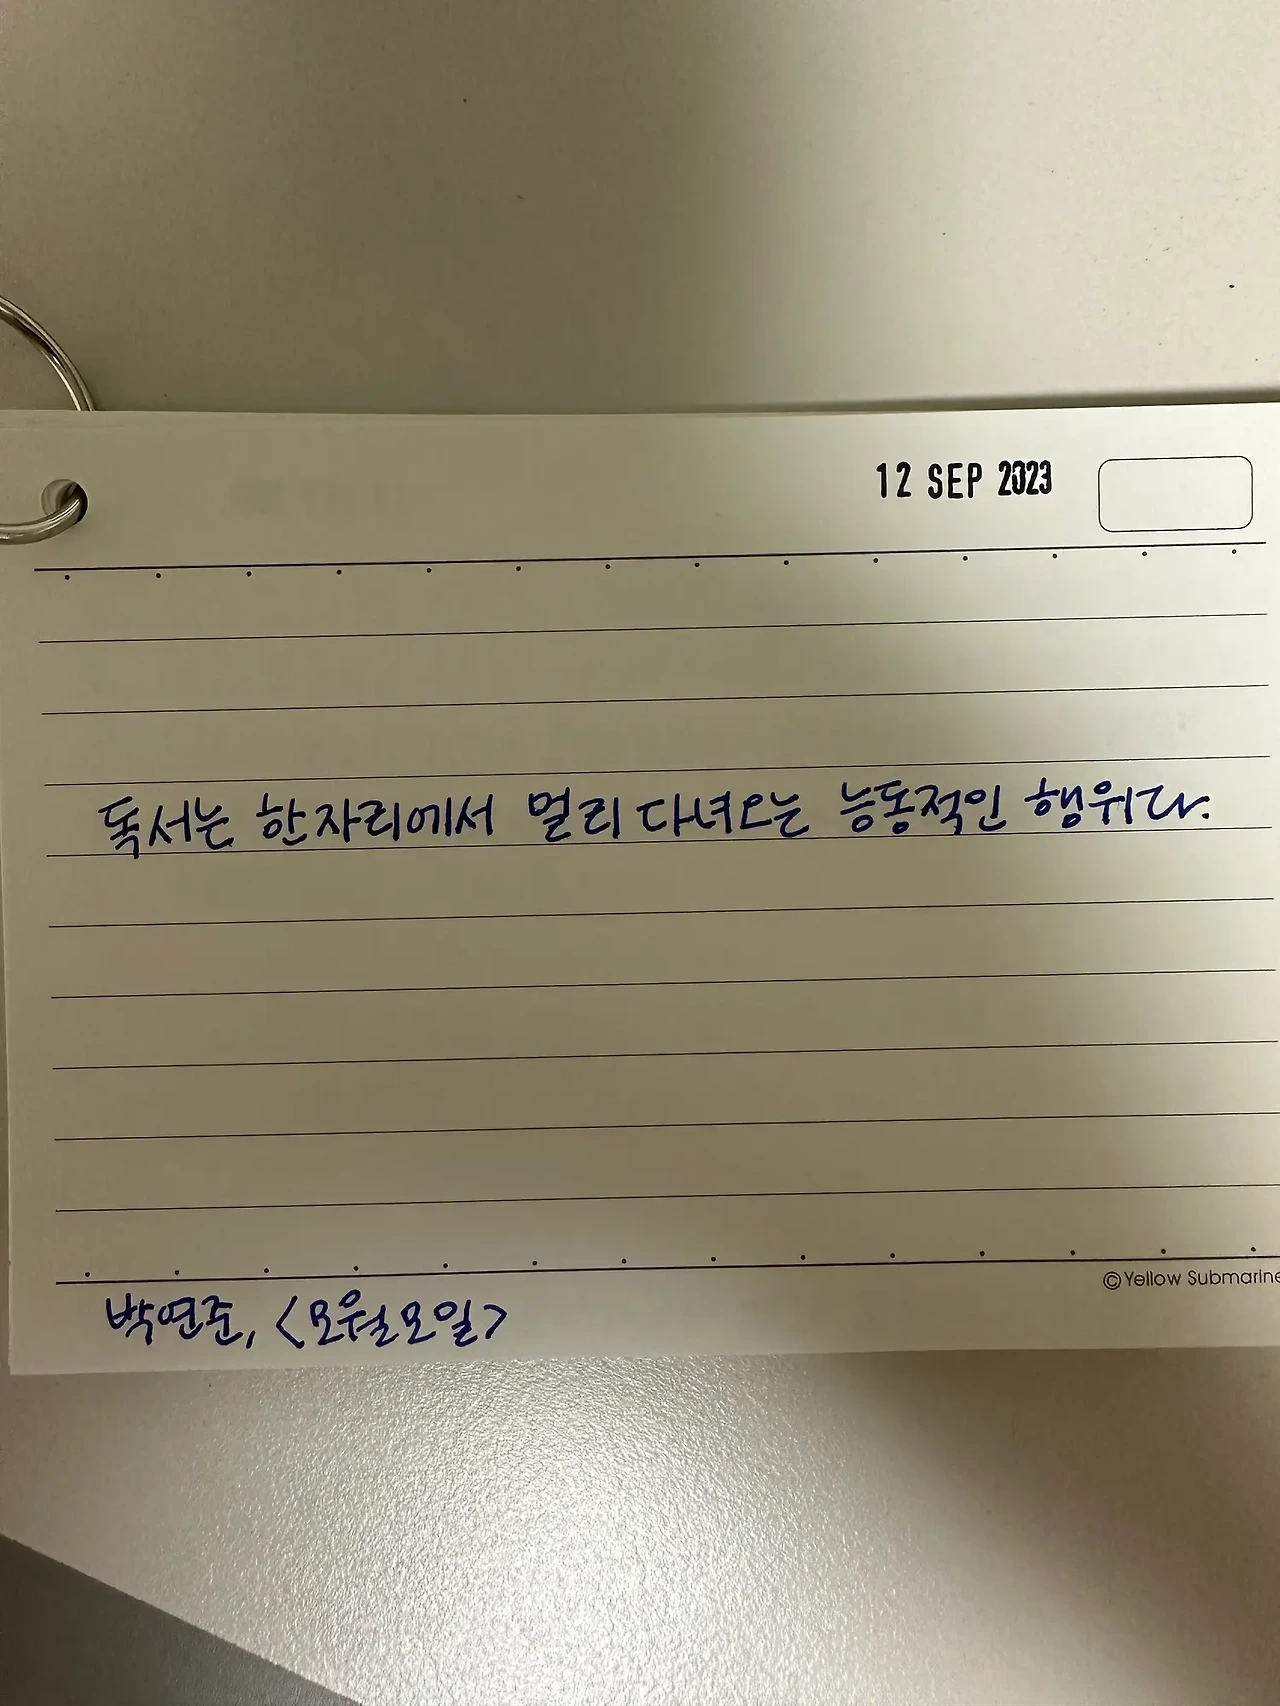 12 SEP 2023
독서는 한자리에서 멀리 다녀오는 능동적인 행위다.
©Yellow Submarine
박연준, <모월모일>